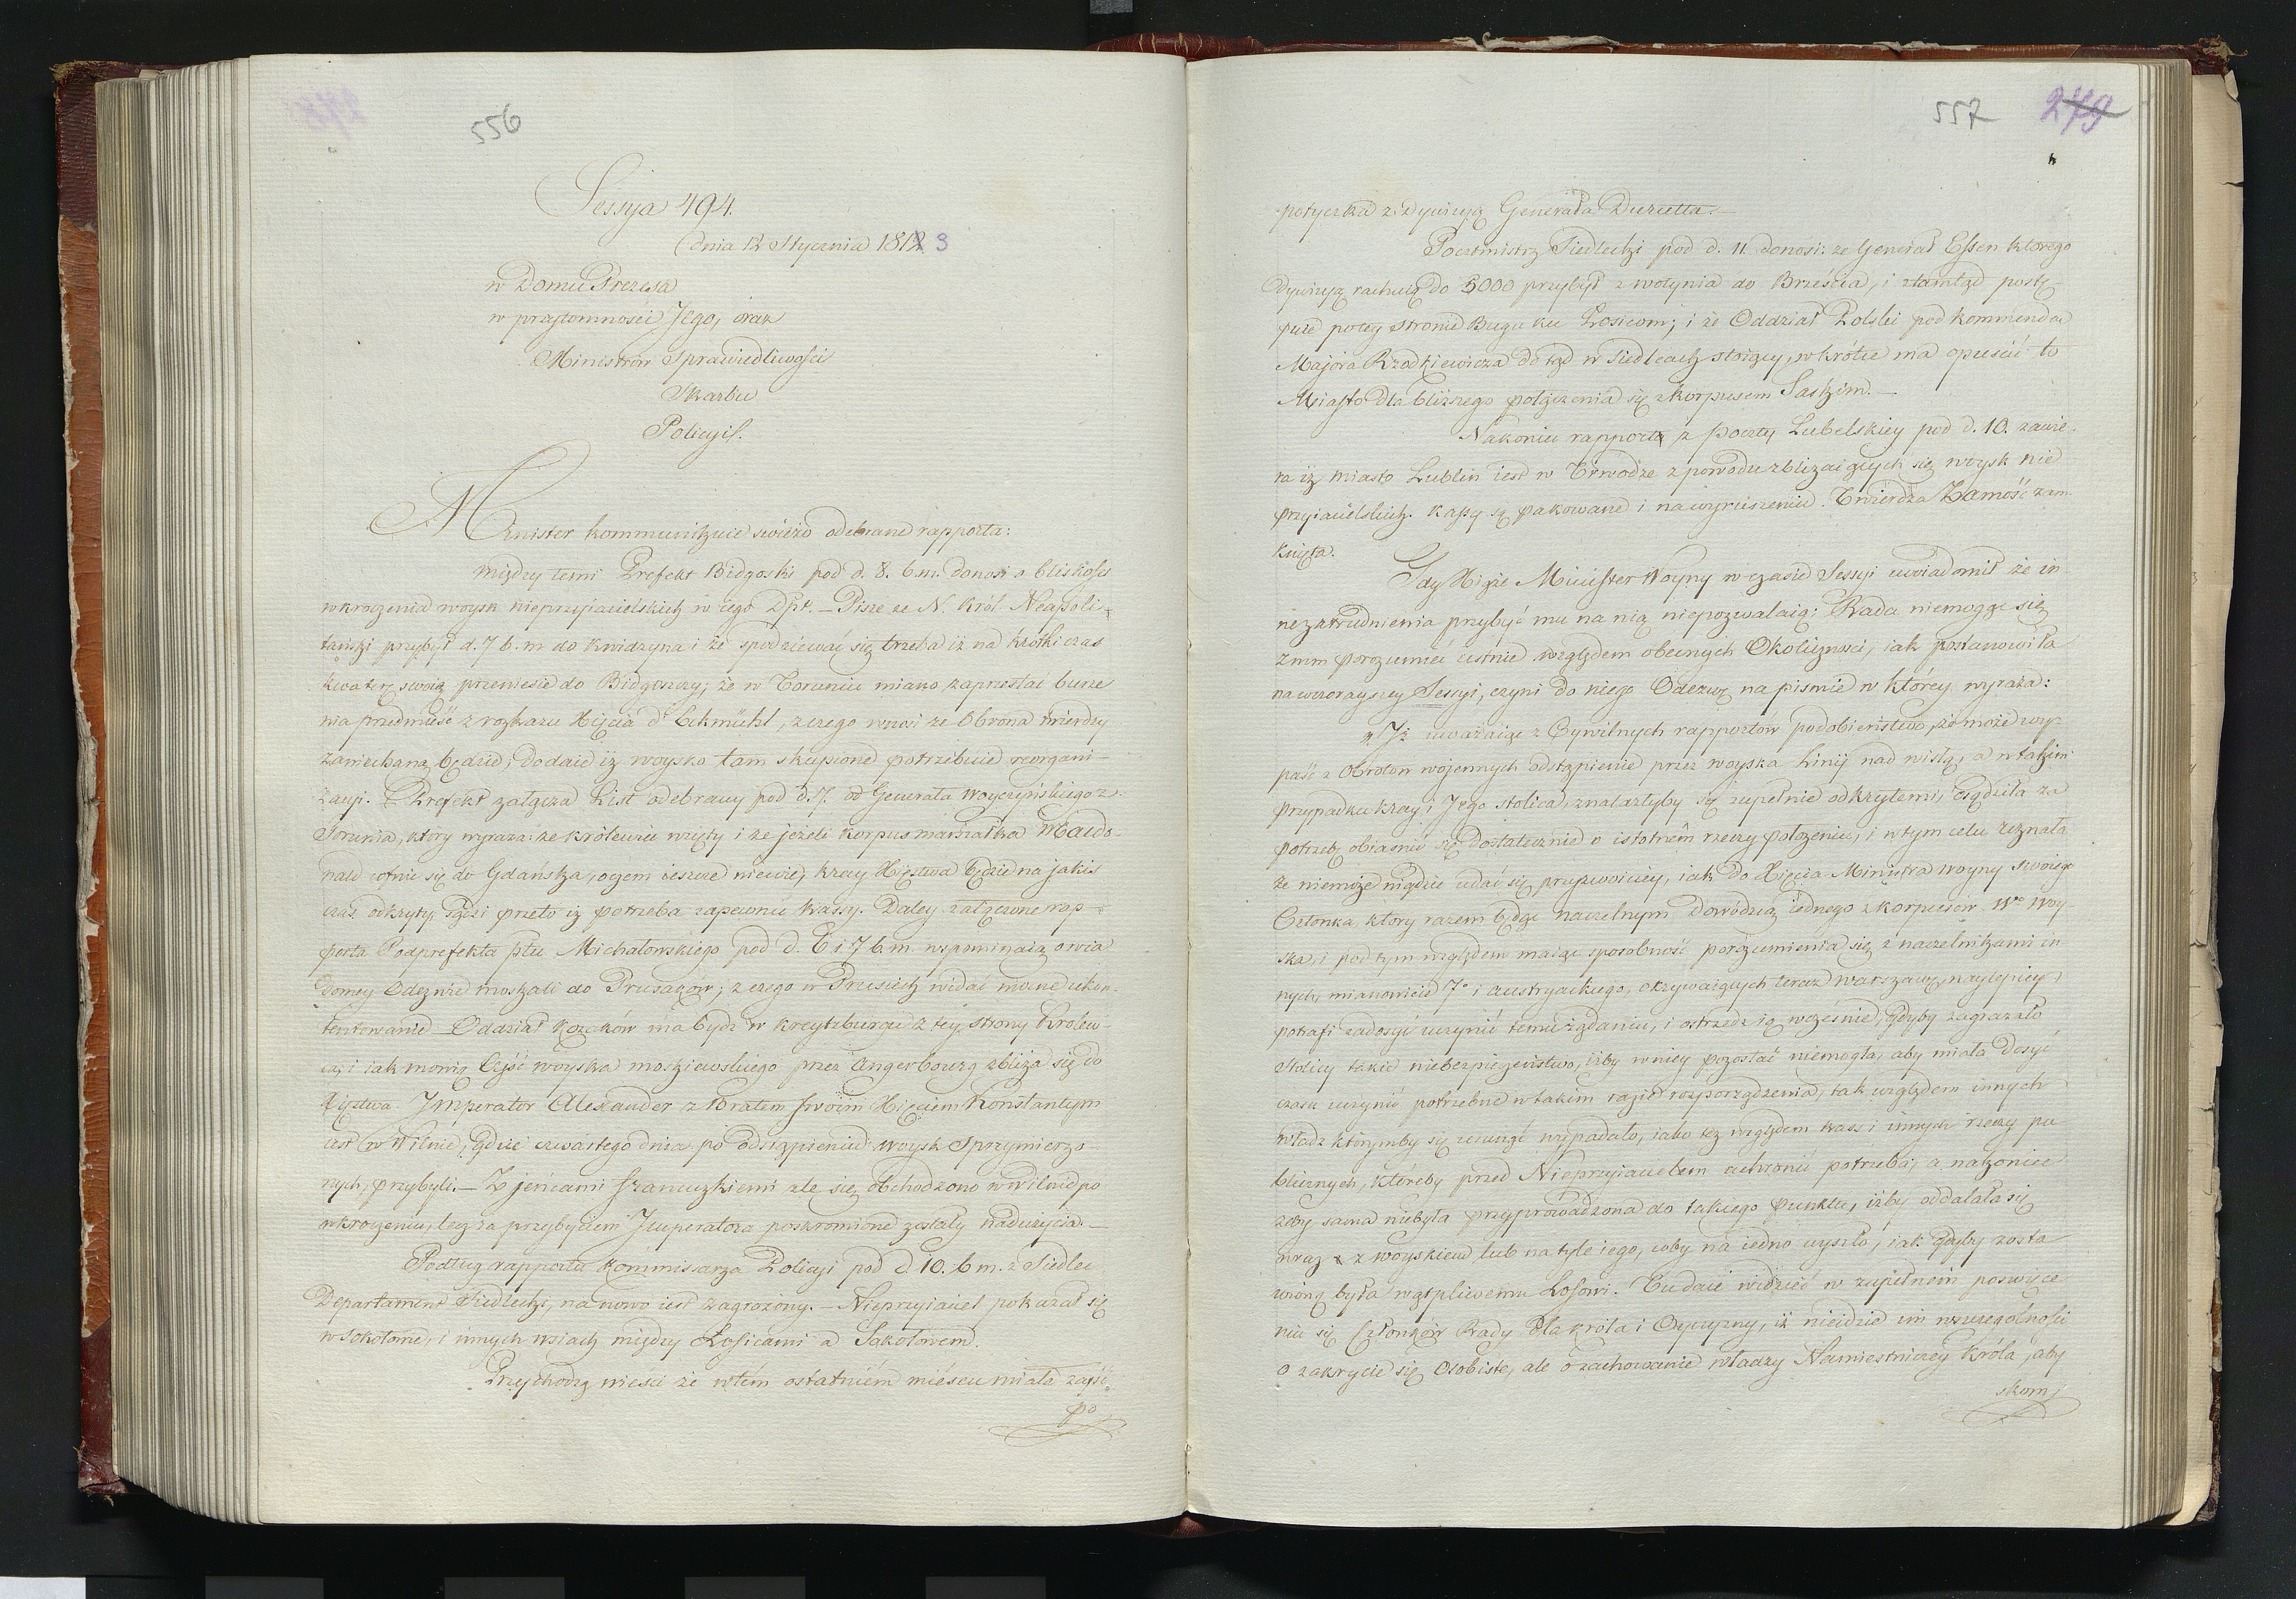 556
Sessya 494.
dnia 12 Stycznia 1812 3
w Domu Prezesa
w przytomności Jego, oraz
Ministrów Sprawiedliwości
Skarbu
Policyi.
Minister kommunikuie świeżo odebrane rapporta:
między temi Prefekt Bidgoski pod d. 8. b.m. donosi o bliskości
wkroczenia woysk nieprzyiacielskich w iego Dpt. — Pisze że N. Król Neapoli-
tański przybył d. 7 b.m do Kwidzyna i że spodziewać się trzeba iż na krótki czas
kwaterę swoią przeniesie do Bidgoszczy; że w Toruniu miano zaprzestać burze
nia przedmieść z rozkazu Xięcia d'Eckmühl, z czego wnosi że Obrona twierdzy
zaniechaną będzie; Dodaie iż woysko tam skupione potrzebuie reorgani-
zacyi. Prefekt załącza List odebrany pod d. 7. od Generała Woyczyńskiego z
Torunia, który wyraża: że Królewiec wzięty i że jeżeli korpus marszałka Macdo-
nald cofnie się do Gdańska, o czem ieszcze niewie, kray Xięstwa będzie na jakiś
czas odkryty, sądzi przeto iż potrzeba zapewnić kassy. Daley załączone rap-
porta Podprefekta ptu Michałowskiego pod d. 6 i 7 b.m. wspominaią o wia
domey Odezwie moskali do Prusaków; z czego w Prusiech widać mocne ukon-
tentowanie. Oddział kozaków ma bydź w Kreytzburgu z tey strony Królew-
ca, i iak mówią Część woyska moskiewskiego przez Angerbourg zbliża się do
Xięstwa. Jmperator Alexander z Bratem swoim Xięciem Konstantym
iest w Wilnie, gdzie czwartego dnia po odstąpieniu woysk Sprzymierzo-
nych, przybyli. — Z jeńcami francuzkiemi źle się obchodzono w Wilnie po
wkroczeniu, lecz za przybyciem Jmperatora poskromione zostały nadużycia. —
Podług rapportu Kommissarza Policyi pod d. 10. b.m. z Siedlec
Departament Siedlecki, na nowo iest zagrożony. — Nieprzyiaciel pokazał się
w Sokołowie, i innych wsiach między Łosicami a Sokołowem.
Przychodzą wieści że w tém ostatniém mieścu miała zayść
po
557 279
potyczka z Dywizyą Generała Durutta. —
Pocztmistrz Siedlecki pod d. 11. donosi: że Generał Essen którego
Dywizyą rachuią do 5000 przybył z Wołynia do Brześcia, i ztamtąd postę-
puie po tey stronie Bugu ku Łosicom; i że Oddział Polski pod kommendą
Majora Rzodkiewicza dotąd w Siedlcach stoiący, wkrótce ma opuścić to
Miasto dla bliższego połączenia się z korpusem Saskim. —
Nakoniec rapport z poczty Lubelskiey pod d. 10. zawie-
ra iż miasto Lublin iest w Trwodze z powodu zbliżaiących się woysk nie
przyiacielskich. Kassy są pakowane i na wyruszeniu. Twierdza Zamość zam-
knięta.
Gdy Xiąże Minister Woyny w czasie Sessyi uwiadomił że in
ne zatrudnienia przybyć mu na nią niepozwalaią: Rada niemogąc się
z nim porozumieć ustnie względem obecnych Okoliczności, iak postanowiła
na wczorayszey Sessyi, czyni do niego Odezwę na pismie w którey wyraża:
„Iż uważaiąc z Cywilnych rapportów podobieństwo, że może wy-
paść z Obrotów wojennych odstąpienie przez woyska Linij nad Wisłą, a w takim
przypadku kray i Jego stolica, znalazłyby się zupełnie odkrytemi, sądziła za
potrzebę obiaśnić się dostatecznie o istotném rzeczy położeniu, i w tym celu uznała
że niemoże nigdzie udać się przyzwoiciey, iak do Xięcia Ministra woyny swoiego
Członka, który razem będąc naczelnym Dowódzcą iednego z korpusów Wo Woy-
ska, i pod tym względem maiąc sposobność porozumienia się z naczelnikami in
nych, mianowicie 7o i Austryackiego, okrywaiących teraz Warszawę, naylepiey
potrafi zadosyć uczynić temu żądaniu, i ostrzedz ią wcześnie, gdyby zagrażało
Stolicy takie niebezpieczeństwo, iżby w niey pozostać niemogła, aby miała dosyć
czasu uczynić potrzebne w takim razie rozporządzenia, tak względem innych
Władz którymby się usunąć wypadało, iako też względem kass i innych rzeczy pu
blicznych, któreby przed Nieprzyiacielem uchronić potrzeba; a nakoniec
żeby sama niebyła przyprowadzona do takiego punktu, iżby oddalała się
wraz z woyskiem lub na tyle iego, coby na iedno wyszło, iak gdyby zosta
wioną była wątpliwemu Losowi. Tu daie widzieć w zupełném poswięce
niu się Członków Rady dla króla i Oyczyzny, iż nieidzie im w szczególności
o zakrycie się osobiste, ale o zachowanie władzy Namiestniczey Króla, aby
skom